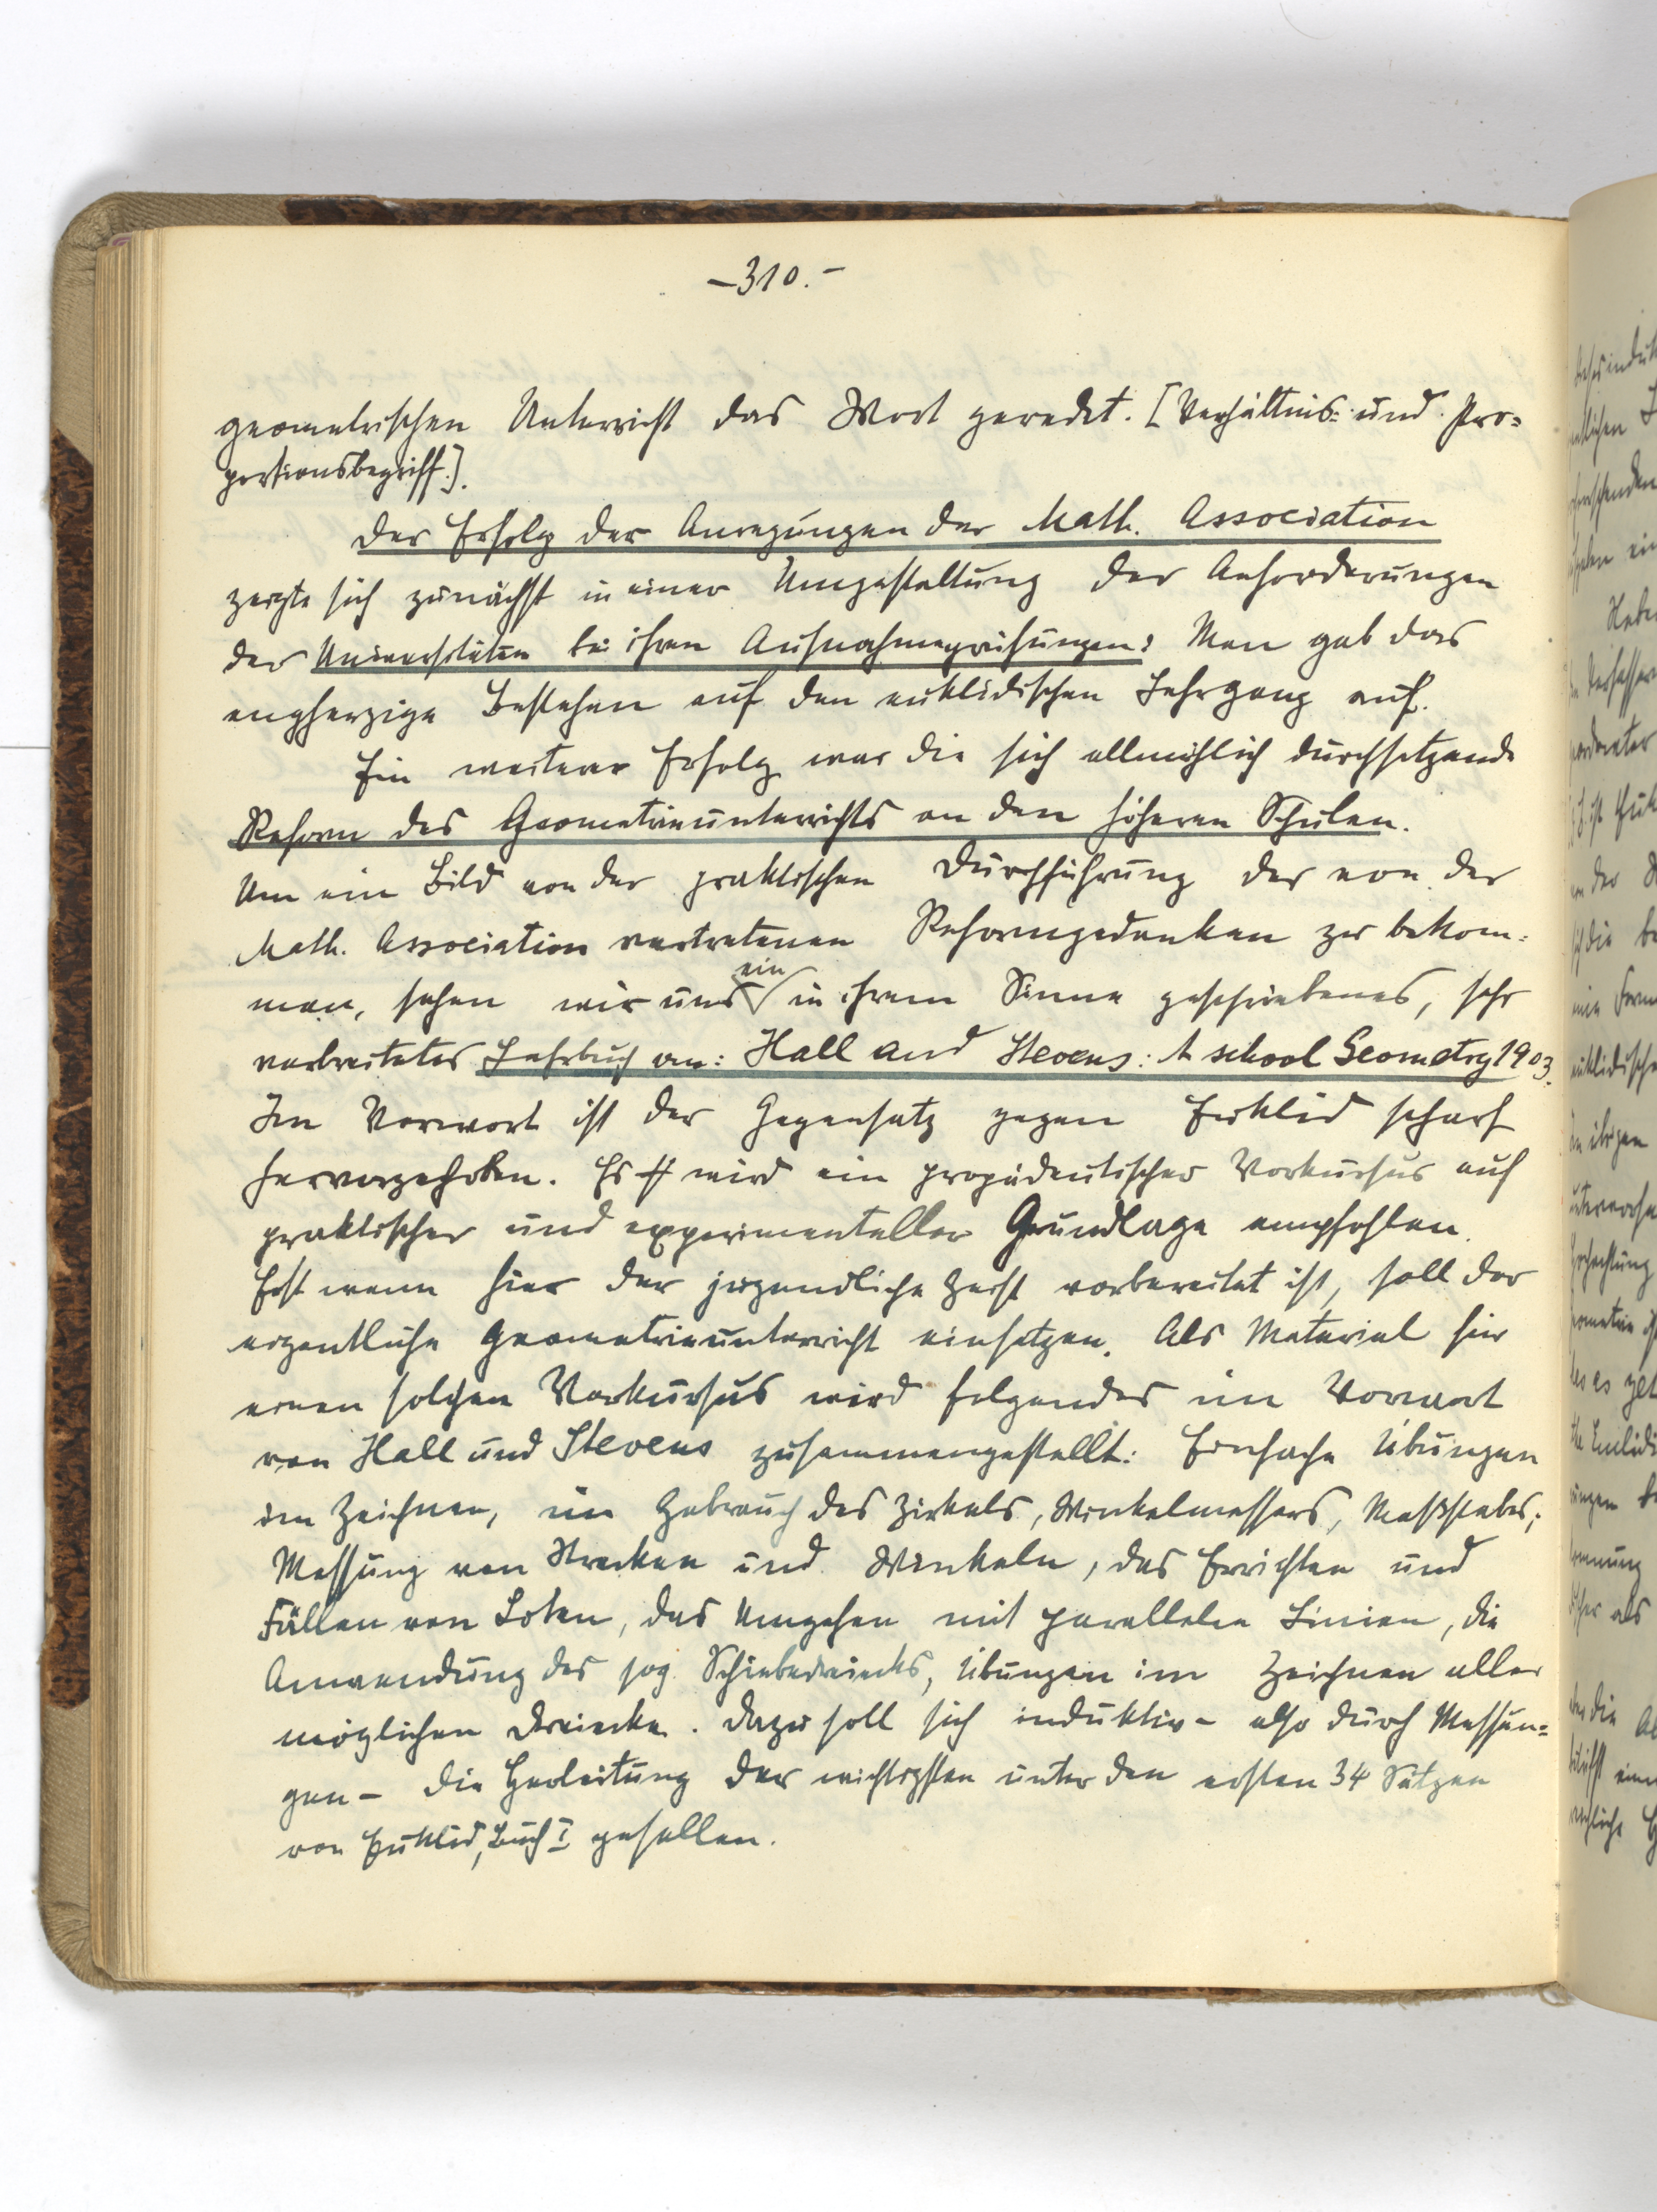 –310.–
geometrischen Unterricht das Wort geredet. [Verhältnis= und Pro=
portionsbegriff.].
Der Erfolg der Anregungen der Math. Association
zeigte sich zunächst in einer Umgestaltung der Anforderungen
der Universitäten bei ihren Aufnahmeprüfungen: Man gab das
engherzige Bestehen auf den euklidischen Lehrgang auf.
Ein weiterer Erfolg war die sich allmählich durchsetzende
Reform des Geometrieunterrichts an den höheren Schulen.
Um ein Bild von der praktischen Durchführung der von der
Math. Association vertretenen Reformgedanken zu bekom=
men, sehen wir uns ein in ihrem Sinne geschriebenes, sehr
verbreitetes Lehrbuch an: Hall and Stevens: A school Geometry 1903.
Im Vorwort ist der Gegensatz gegen Euklid scharf
hervorgehoben. Es wird ein propädeutischer Vorkursus auf
praktischer und experimenteller Grundlage empfohlen.
Erst wenn hier der jugendliche Geist vorbereitet ist, soll der
eigentliche Geometrieunterricht einsetzen. Als Material für
einen solchen Vorkursus wird folgendes im Vorwort
von Hall und Stevens zusammengestellt: Einfache Übungen
im Zeichnen, im Gebrauch des Zirkels, Winkelmessers, Maßstabes;
Messung von Strecken und Winkeln, das Errichten und
Fällen von Loten, das Umgehen mit parallelen Linien, die
Anwendung des sog. Schiebedreiecks, Übungen im Zeichnen aller
möglichen Dreiecke. Dazu soll sich induktiv – also durch Messun=
gen – die Herleitung der wichtigsten unter den ersten 34 Sätzen
von Euklid, Buch I gesellen.